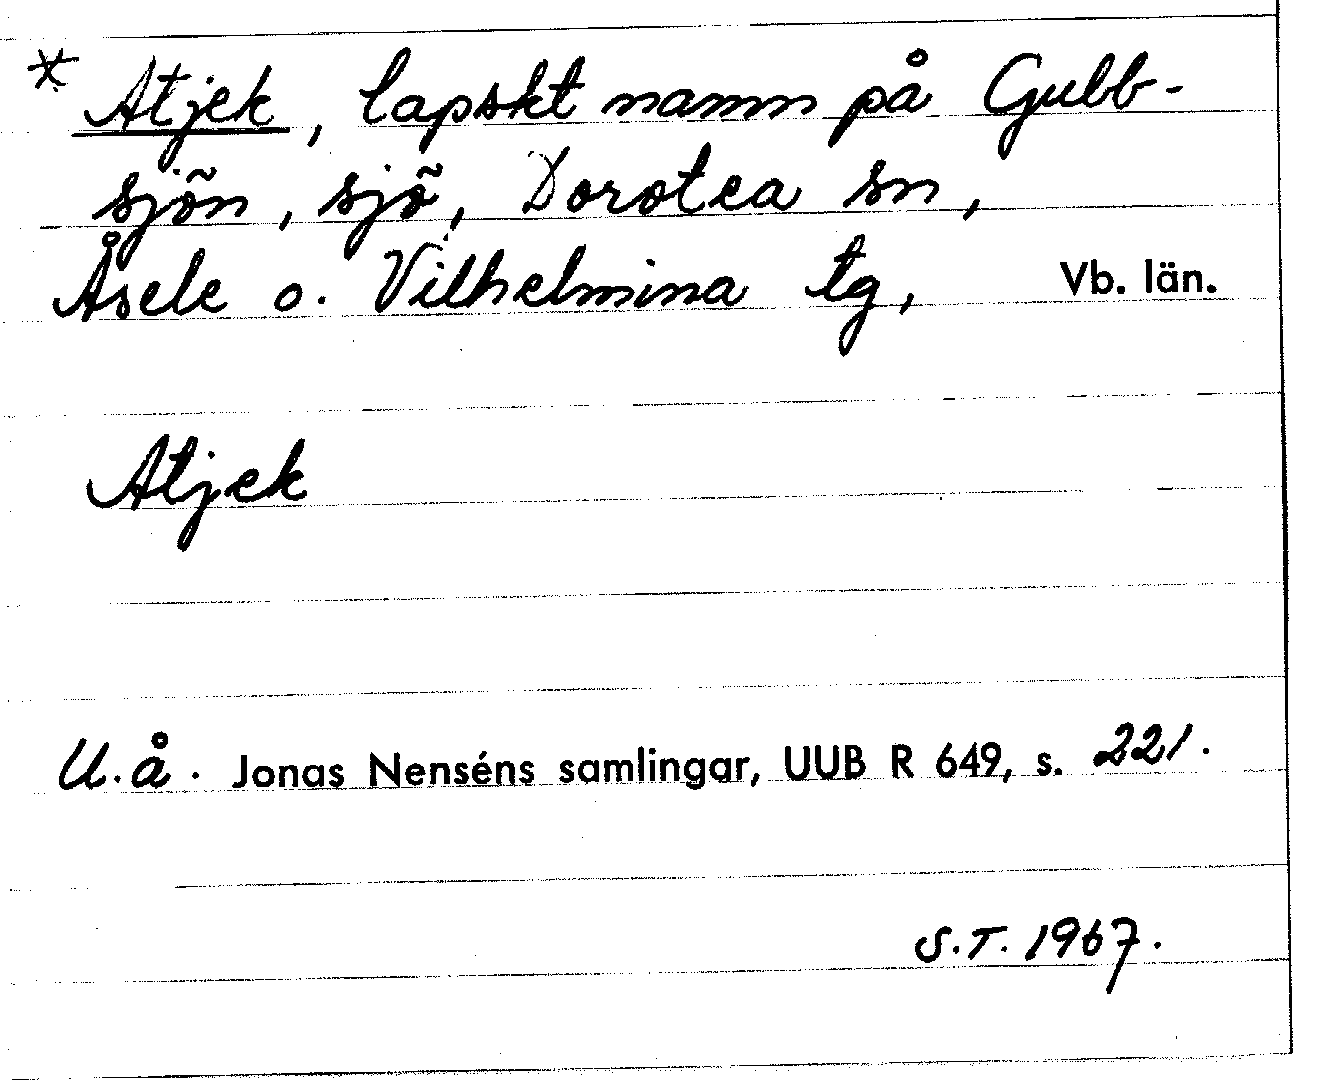 * Atjek, lapskt namn på Gubb-
sjön, sjö, Dorotea sn,
Åsele o. Vilhelmina tg, Vb. län.
Atjek
U.å. Jonas Nenséns samlingar, UUB R 649, s. 221.
S.T. 1967.